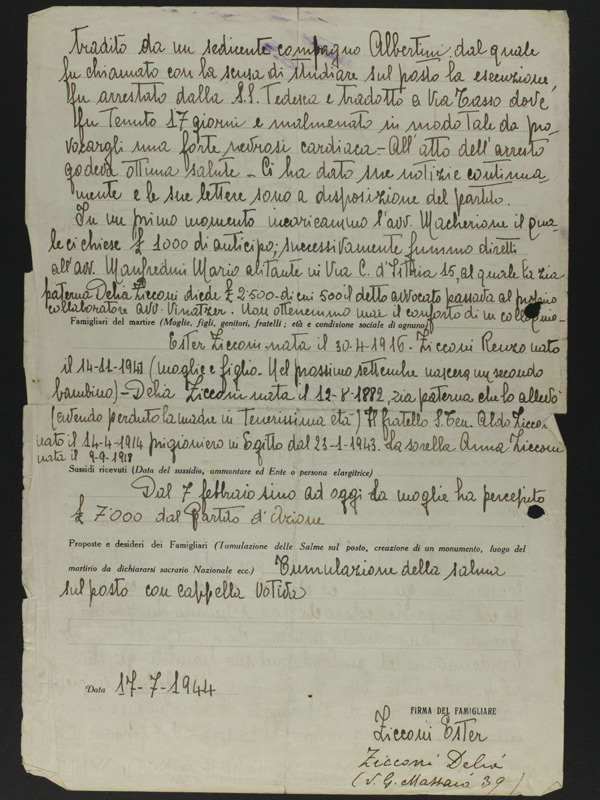 tradito da un sedicente compagno Albertini, dal quale
fu chiamato con la scusa di studiare sul posto la esecuzione,
fu arrestato dalla S.S. Tedesca e tradotto a Via Tasso dove
fu Tenuto 17 giorni e malmenato in modo tale da pro-
vocargli una forte nevrosi cardiaca - All'atto dell'arresto
godeva ottima salute - Ci ha dato sue notizie continua-
mente e le sue lettere sono a disposizione del partito.
In un primo momento incaricammo l'avv. Macherione il qua-
le ci chiese £ 1000 di anticipo; successivamente fummo diretti
all'avv. Manfredini Mario abitante in Via C. d'Istria 15, al quale la zia
paterna Delia Zicconi diede £ 2.500 - di cui 500 il detto avvocato passava al
collaboratore avv. Vinatzer. Non ottenemmo mai il conforto di un colloquio -
Famigliari del martire (Moglie, figli, genitori, fratelli; età e condizione sociale di ognuno)
Ester Zicconi nata il 30.4-1916 - Zicconi Renzo nato
il 14-11-1943 (moglie e figlio - Nel prossimo settembre nascerà un secondo
bambino) - Delia Zicconi nata il 12-8-1882, zia paterna che lo allevò
(avendo perduto la madre in tenerissima età) Il fratello S. Ten. Aldo Zicco-
nato il 14-4-1914 prigioniero in Egitto dal 23-1-1943. La sorella Anna Zicconi
nata il 9-9-1918
Sussidi ricevuti (Data del sussidio, ammontare ed Ente o persona elargitrice)
Dal 7 febbraio sino ad oggi la moglie ha percepito
£ 7000 dal Partito d'Azione
Proposte e desideri dei Famigliari (Tumulazione delle Salme sul posto, creazione di un monumento, luogo del
martirio da dichiararsi sacrario Nazionale ecc.) Tumulazione della salma
sul posto con cappella votiva
Data 17-7-1944
FIRMA DEL FAMIGLIARE
Zicconi Ester
Zicconi Delia
(V. G. Massaia 39)